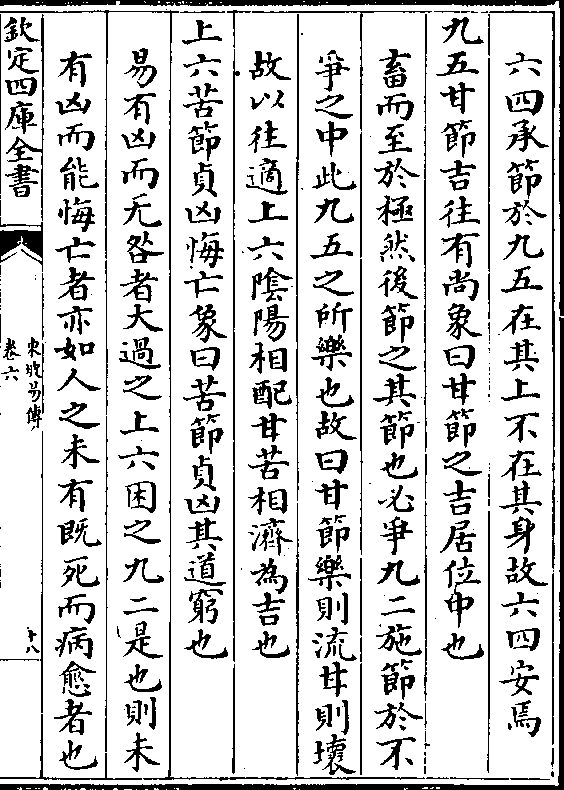 六四承節於九五在其上不在其身故六四安焉
九五甘節吉往有尚象曰甘節之吉居位中也
畜而至於極然後節之其節也必爭九二施節於不
爭之中此九五之所樂也故曰甘節樂則流甘則壞
故以往適上六陰陽相配甘苦相濟為吉也
上六苦節貞凶悔亡象曰苦節貞凶其道窮也
易有凶而无咎者大過之上六困之九二是也則未
有凶而能悔亡者亦如人之未有既死而病愈者也
欽定四庫全書
東坡易傳
卷六
十八